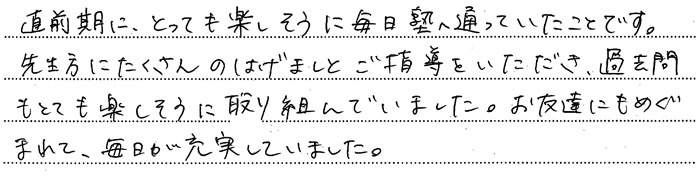 直前期に、とっても楽しそうに毎日塾へ通っていたことです。
先生方にたくさんのはげましとご指導をいただき、過去問
もとても楽しそうに取り組んでいました。お友達にもめぐ
まれて、毎日が充実していました。